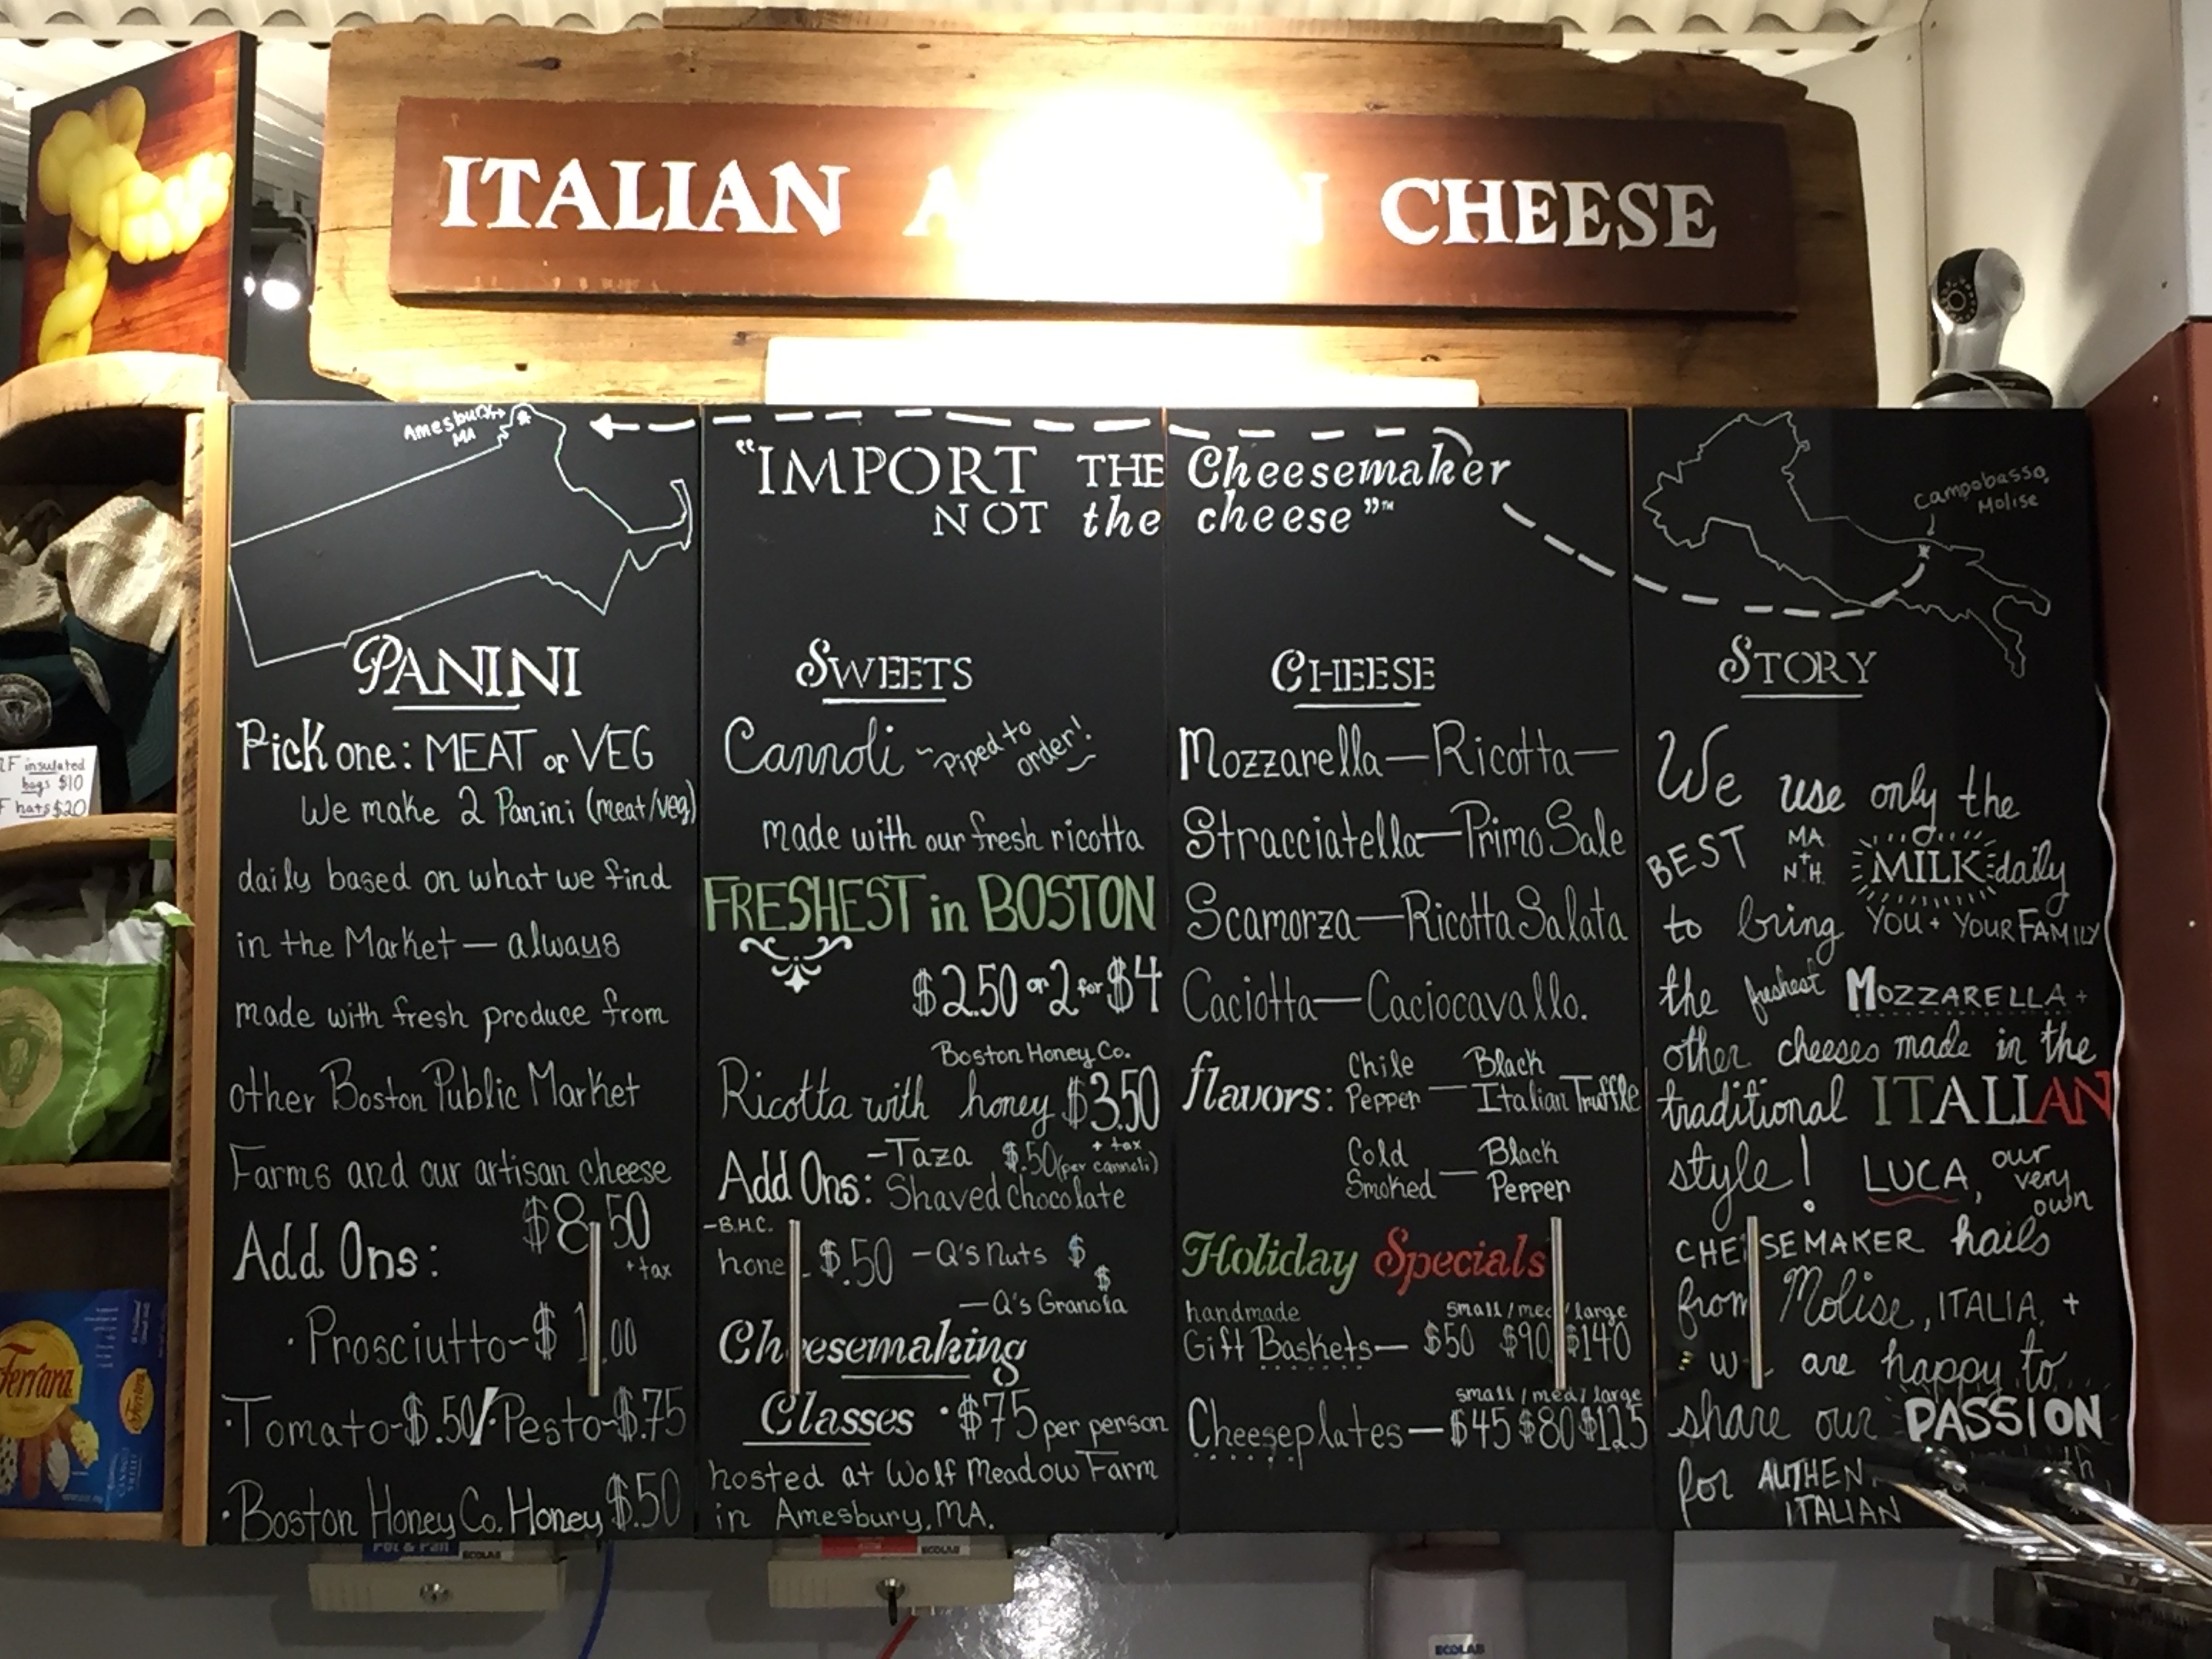 ITALIAN A N CHEESE
Amesbury
MA
"IMPORT THE Cheesemaker
NOT the cheese"™
Campobasso,
Molise
PANINI
Pick one: MEAT or VEG
We make 2 Panini (meat/veg)
daily based on what we find
in the Market — always
made with fresh produce from
other Boston Public Market
Farms and our artisan cheese
$8.50
+ tax
Add Ons:
· Prosciutto ~ $1.00
· Tomato ~ $.50 / · Pesto ~ $.75
· Boston Honey Co. Honey $.50
SWEETS
Cannoli ~ Piped to
order!
made with our fresh ricotta
FRESHEST in BOSTON
$2.50 or 2 for $4
Boston Honey Co.
Ricotta with honey $3.50
+ tax
Add Ons: - Taza $.50 (per cannoli)
Shaved chocolate
- B.H.C.
hone $.50 - Q's Nuts $
$
— Q's Granola
Cheesemaking
Classes · $75 per person
hosted at Wolf Meadow Farm
in Amesbury, MA.
CHEESE
Mozzarella — Ricotta —
Stracciatella — Primo Sale
Scamorza — Ricotta Salata
Caciotta — Caciocavallo.
flavors: Chile Pepper — Black Italian Truffle
Cold Smoked — Black Pepper
Holiday Specials
handmade small / med / large
Gift Baskets — $50 $90 $140
small / med / large
Cheeseplates — $45 $80 $125
STORY
We use only the
BEST MA + N.H. MILK daily
to bring YOU + YOUR FAMILY
the freshest MOZZARELLA +
other cheeses made in the
traditional ITALIAN
style! LUCA, our very own
CHEESEMAKER hails
from Molise, ITALIA, +
we are happy to
share our PASSION
for AUTHEN
ITALIAN
insulated
bags $10
hats $20
Ferrara
Ferrara
Pot & Pan
ECOLAB
ECOLAB
ECOLAB